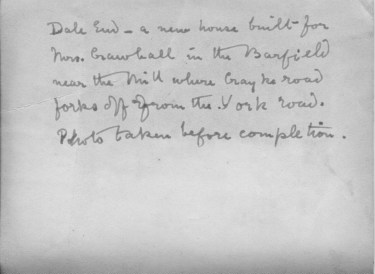 Dale End – a new house built for
Mrs. Crawhall in the Barfield
near the Mill where Crayke road
forks off from the York road.
Photo taken before completion.